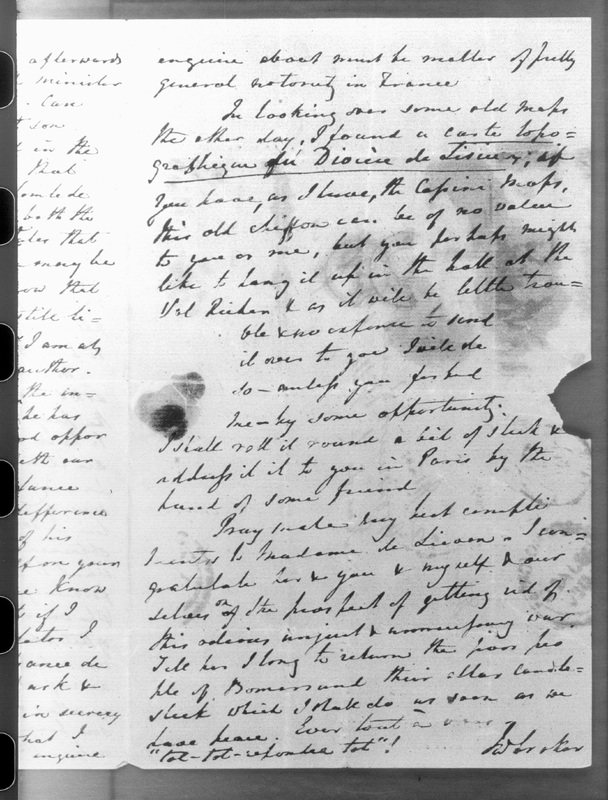 afterwards
minister
. Can
t son
d in the
that
both the
ales that
may be
ow that
still li=
I am at
author.
the in=
he has
oppor
with our
difference
of his
upon your
e Know
t if I
I
ance de
ark &
in
hat I
enquire
enquire about must be matter of pretty
general notoriety in France
In looking over some old maps
the other day, I found a carte topo=
graphique du Diocèse de Lisieux; if
You have, as I have, the Cassini Maps,
this old chiffon can be of no value
to you or me, but you perhaps might
like to hang it up in the hall at the
Val Richer & as it will be little trou=
ble & no expense to send
it over to you I will do
so – unless you forbid
me – by some opportunity.
I shall roll it round a bit of stick &
address it to you in Paris by the
hand of some friend
Pray make my best compli
ments to Madame de Lieven – I con=
gratulate her & you & myself & our
selves on the prospect of getting rid of
this odious unjust & unnecessary war
Tell her I long to return the poor peo
ple of Bomarsund their altar candle=
stick which I shall do as soon as we
have peace. Ever tout a vous
"Tot-tot-réponse tot"!
JW Croker